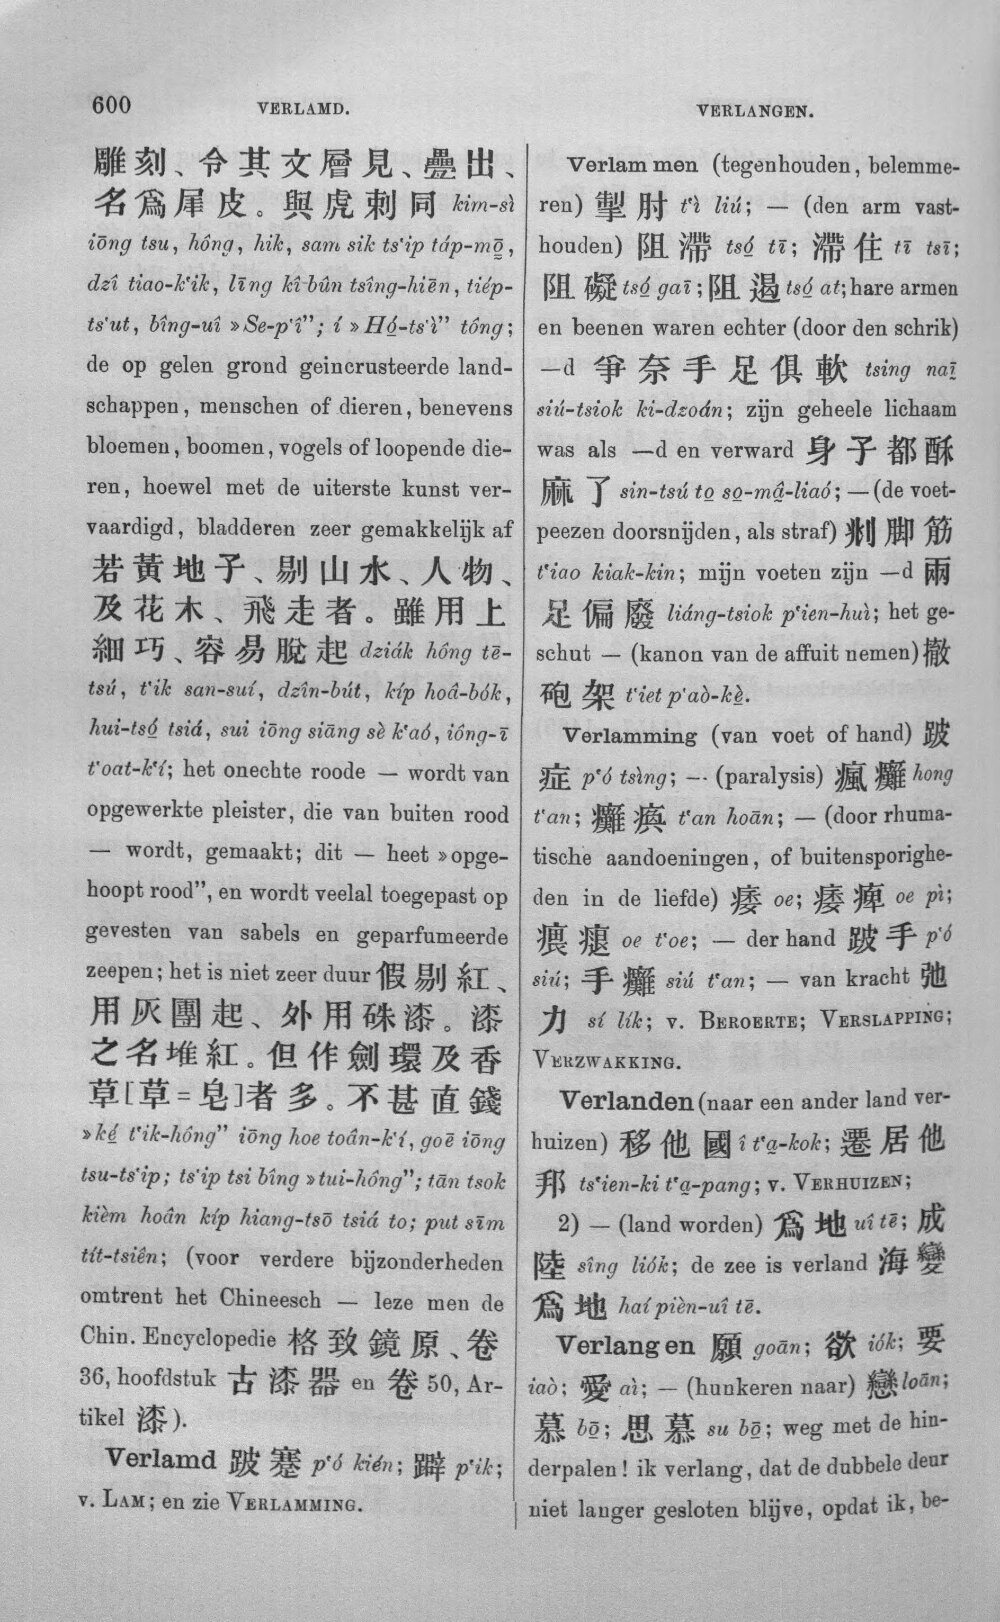 600
VERLAMD.
VERLANGEN.
雕刻、令其文層見、疊出、
名爲犀皮。與虎刺同 kim-sì
iōng tsu, hông, hik, sam sik ts‘ip táp-mō̤,
dzî tiao-k‘ik, līng kî-bûn tsîng-hiēn, tiép-
ts‘ut, bîng-uî »Se-p‘î”; í »Hó̤-ts‘ì” tông;
de op gelen grond geincrusteerde land-
schappen, menschen of dieren, benevens
bloemen, boomen, vogels of loopende die-
ren, hoewel met de uiterste kunst ver-
vaardigd, bladderen zeer gemakkelijk af
若黃地子、剔山水、人物、
及花木、飛走者。雖用上
細巧、容易脫起 dziák hông tē-
tsú, t‘ik san-suí, dzîn-bút, kíp hoâ-bók,
hui-tsó̤ tsiá, sui iōng siāng sè k‘aó, iông-ī
t‘oat-k‘í; het onechte roode — wordt van
opgewerkte pleister, die van buiten rood
— wordt, gemaakt; dit — heet »opge-
hoopt rood”, en wordt veelal toegepast op
gevesten van sabels en geparfumeerde
zeepen; het is niet zeer duur 假剔紅、
用灰團起、外用硃漆。漆
之名堆紅。但作劍環及香
草[草=皂]者多。不甚直錢
»ké̤ t‘ik-hông” iōng hoe toân-k‘í, goē iōng
tsu-ts‘ip; ts‘ip tsi bîng »tui-hông”; tān tsok
kièm hoân kíp hiang-tsō tsiá to; put sīm
tít-tsiên; (voor verdere bijzonderheden
omtrent het Chineesch — leze men de
Chin. Encyclopedie 格致鏡原、卷
36, hoofdstuk 古漆器 en 卷 50, Ar-
tikel 漆).
Verlamd 跛蹇 p‘ó kién; 躃 p‘ik;
v. LAM; en zie VERLAMMING.
Verlammen (tegenhouden, belemme-
ren) 掣肘 t‘ì liú; — (den arm vast-
houden) 阻滯 tsó̤ tī; 滯住 tī tsī;
阻礙 tsó̤ gaī; 阻遏 tsó̤ at; hare armen
en beenen waren echter (door den schrik)
—d 爭奈手足俱軟 tsing naī̤
siú-tsiok ki-dzoán; zijn geheele lichaam
was als —d en verward 身子都酥
麻了 sin-tsú to̤ so̤-mâ̤-liaó; — (de voet-
peezen doorsnijden, als straf) 剕脚筋
t‘iao kiak-kin; mijn voeten zijn —d 兩
足偏廢 liáng-tsiok p‘ien-huì; het ge-
schut — (kanon van de affuit nemen) 撤
砲架 t‘iet p‘aò-kè̤.
Verlamming (van voet of hand) 跛
症 p‘ó tsìng; — (paralysis) 瘋癱 hong
t‘an; 癱瘓 t‘an hoān; — (door rhuma-
tische aandoeningen, of buitensporighe-
den in de liefde) 痿 oe; 痿痺 oe pì;
oe t‘oe; — der hand 跛手 p‘ó
siú; 手癱 siú t‘an; — van kracht 弛
力 sí lík; v. BEROERTE; VERSLAPPING;
VERZWAKKING.
Verlanden (naar een ander land ver-
huizen) 移他國 î t‘a̤-kok; 遷居他
邦 ts‘ien-ki t‘a̤-pang; v. VERHUIZEN;
2) — (land worden) 爲地 uî tē; 成
陸 sîng liók; de zee is verland 海變
爲地 haí pièn-uî tē.
Verlangen 願 goān; 欲 iók; 要
iaò; 愛 aì; — (hunkeren naar) 戀 loān;
慕 bō̤; 思慕 su bō̤; weg met de hin-
derpalen! ik verlang, dat de dubbele deur
niet langer gesloten blijve, opdat ik, be-